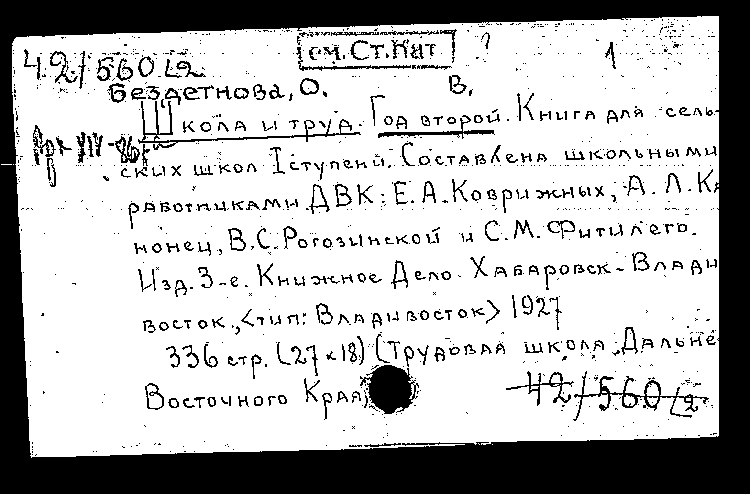 см. Ст. Кат ? 1
42/560 L2
Бездетнова, О. В.
Школа и труд. Год второй. Книга для сель-
ских школ I ступени. Составлена школьными
работниками ДВК: Е.А. Коврижных, А.Л. Ка
нонец, В.С. Рогозинской и С.М. Фитилего.
Изд. 3-е. Книжное Дело. Хабаровск - Влади
восток, <тип: Владивосток> 1927
336 стр. (27×18) (Трудовая школа Дальне
Восточного Края)
42/560 L2